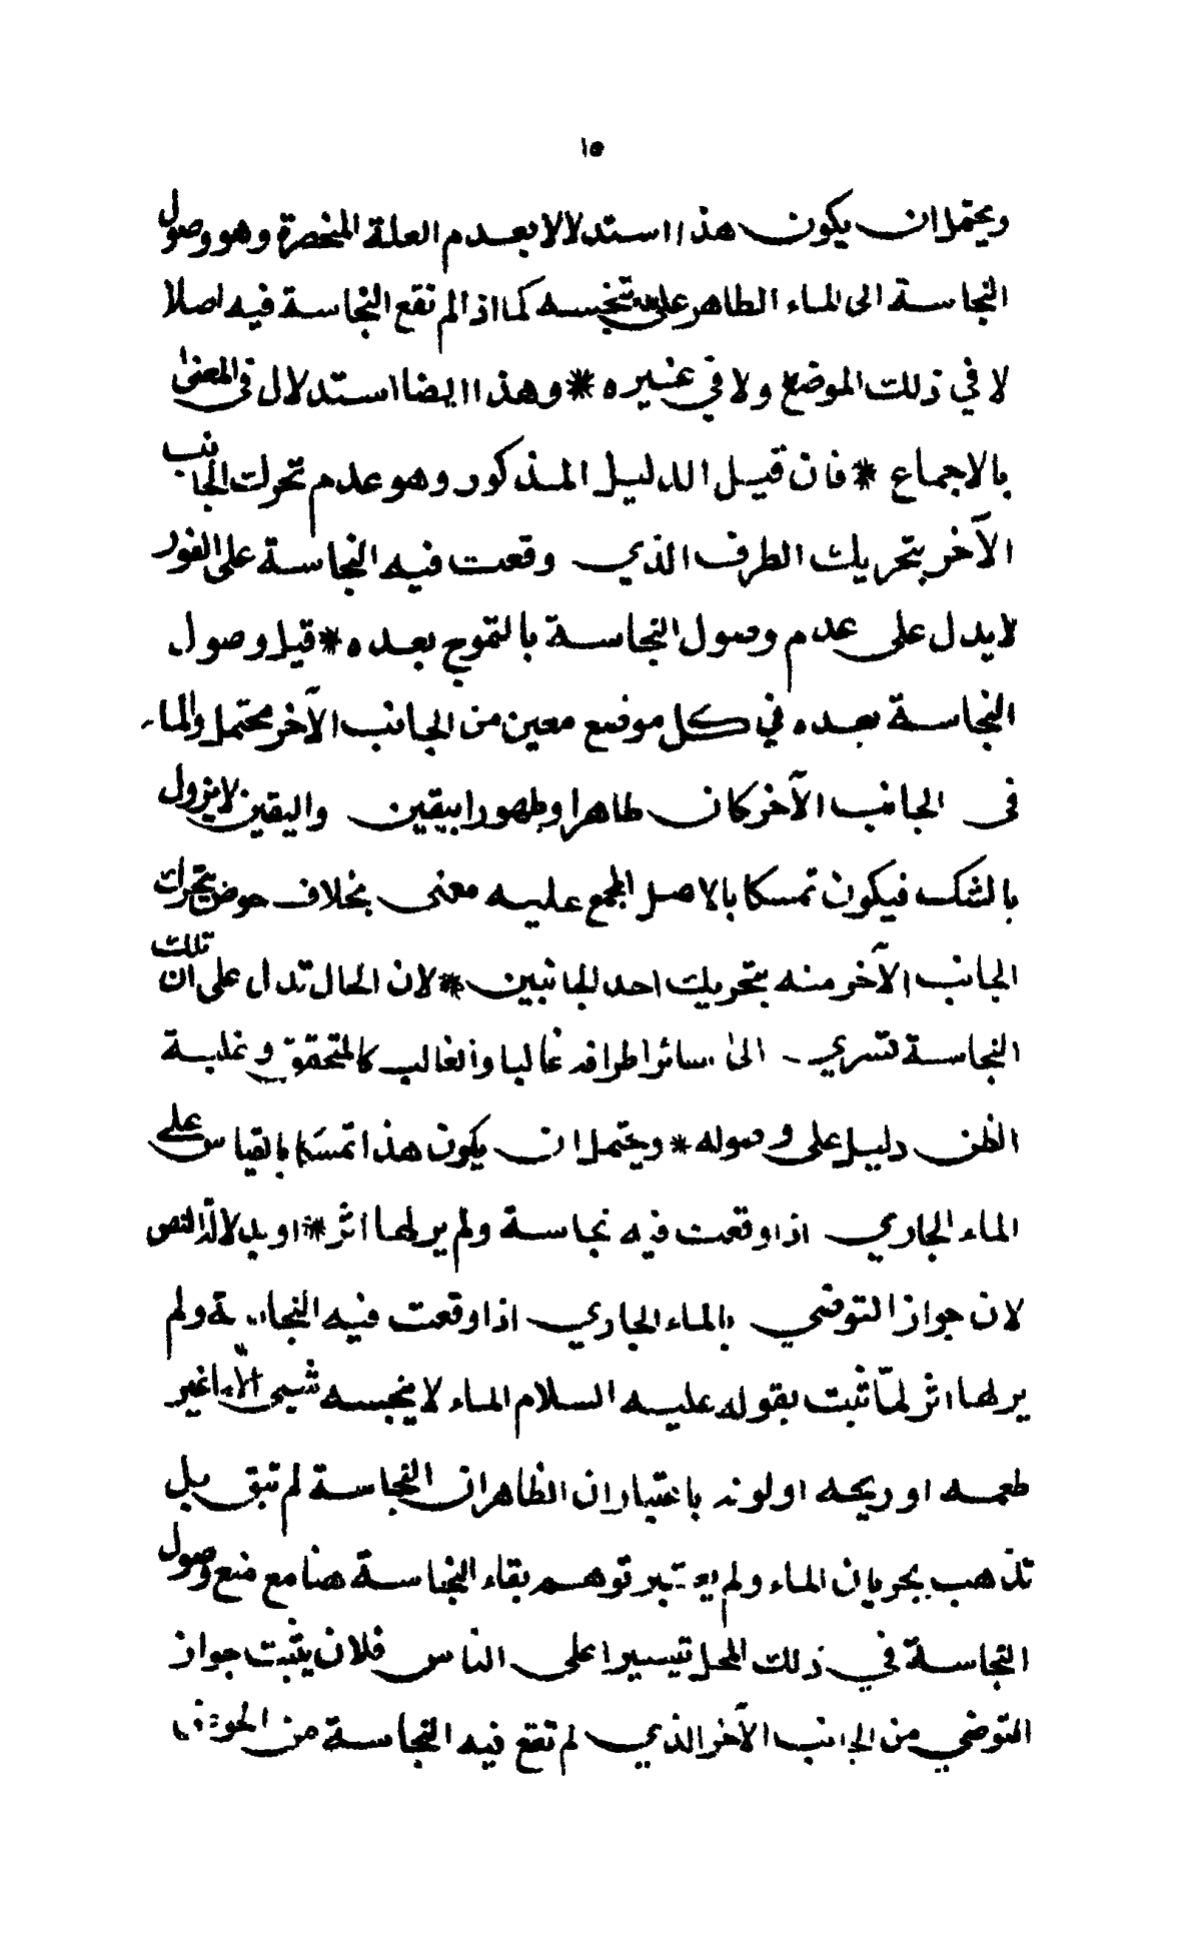 ١٥
ويحتمل ان يكون هذا استدلالا بعدم العلة المنحصرة وهو وصول
النجاسة الى الماء الطاهر على تنجسه كما اذا لم تقع النجاسة فيه اصلا
لا في ذلك الموضع ولا في غيره * وهذا ايضا استدلال في المعنى
بالاجماع * فان قيل الدليل المذكور وهو عدم تحرك الجانب
الآخر بتحريك الطرف الذي وقعت فيه النجاسة على الفور
لا يدل على عدم وصول النجاسة بالتموج بعده * قيل وصول
النجاسة بعده في كل موضع معين من الجانب الآخر محتمل والماء
فى الجانب الآخر كان طاهرا وطهورا بيقين واليقين لا يزول
بالشك فيكون تمسكا بالاصل المجمع عليه معنى بخلاف حوض يتحرك
الجانب الآخر منه بتحريك احد الجانبين * لان الحال تدل على ان تلك
النجاسة تسري الى سائر اطرافه غالبا والغالب كالمتحقق وغلبة
الظن دليل على وصوله * ويحتمل ان يكون هذا تمسكا بالقياس على
الماء الجاري اذا وقعت فيه نجاسة ولم ير لها اثر * او بدلالة النص
لان جواز التوضي بالماء الجاري اذا وقعت فيه النجاسة ولم
ير لها اثر لمّا ثبت بقوله عليه السلام الماء لا ينجسه شيئ الّا ما غير
طعمه او ريحه او لونه باعتبار ان الظاهر ان النجاسة لم تبق بل
تذهب بجريان الماء ولم يعتبر توهم بقاء النجاسة هنا مع منع وصول
النجاسة في ذلك المحل تيسيرا على الناس فلان يثبت جواز
التوضي من الجانب الآخر الذي لم تقع فيه النجاسة من الحوض